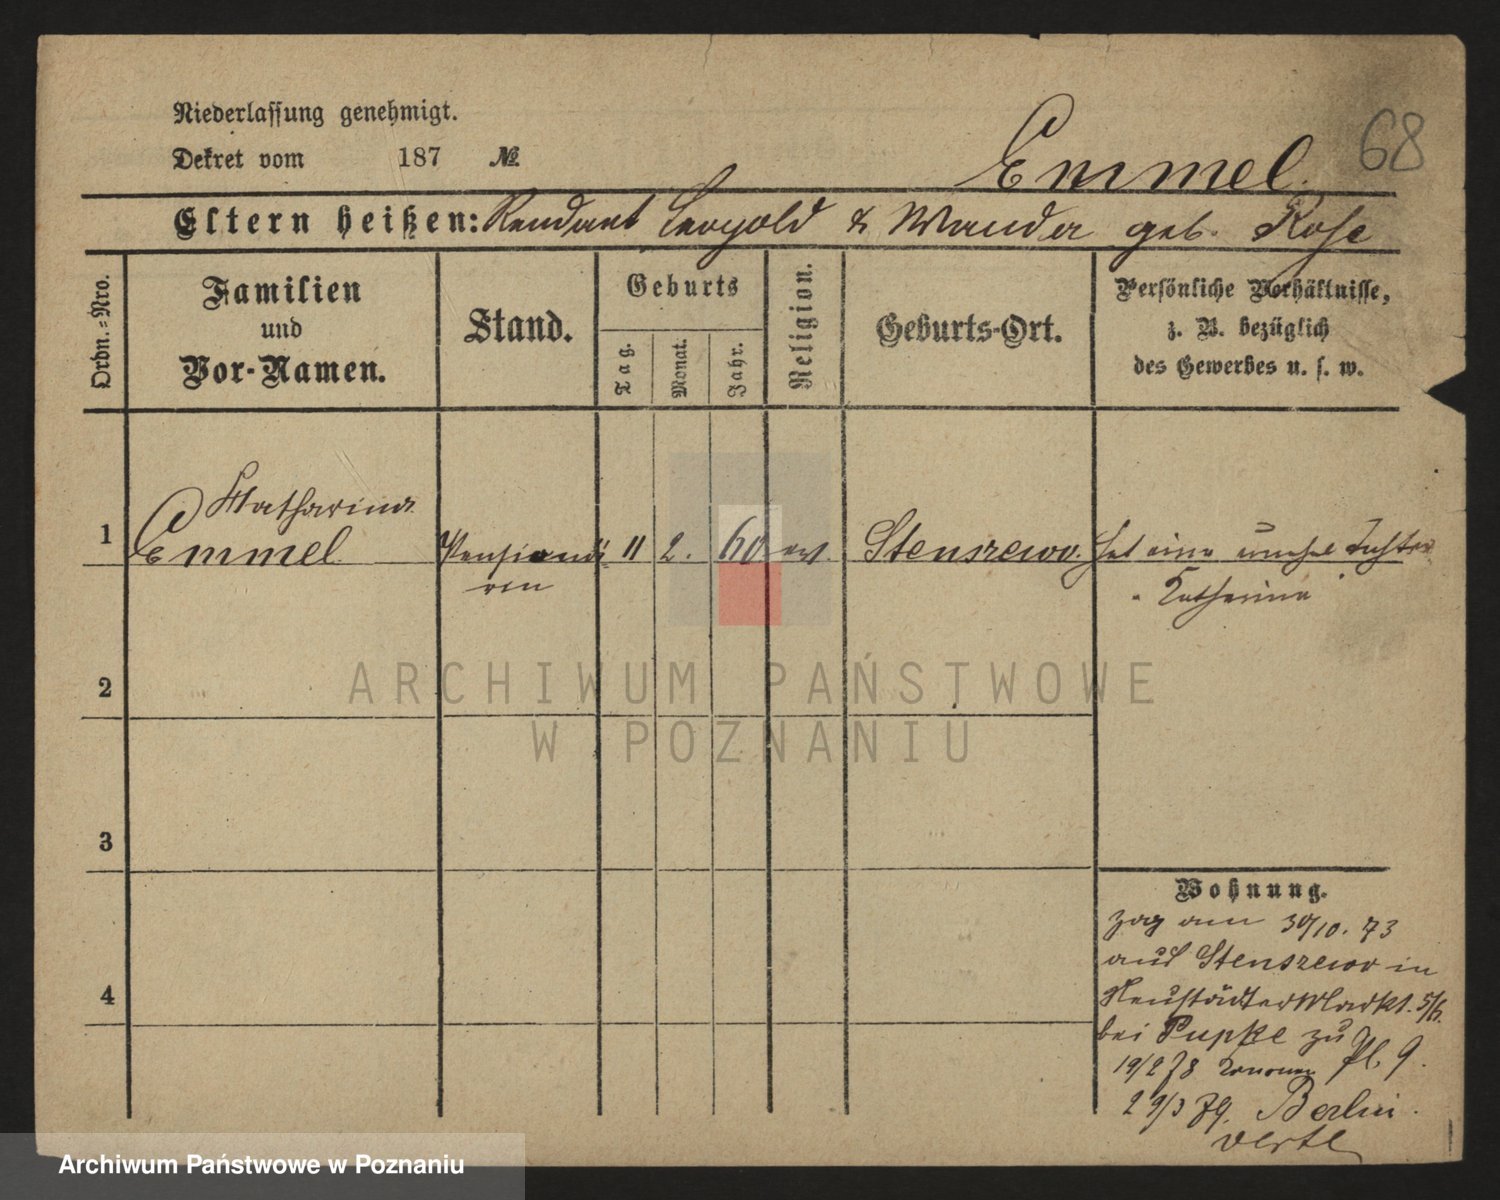 Niederlassung genehmigt.
Dekret vom 187 №
Emmel.
68
Eltern heißen: Rendant Leopold & Wanda geb. Rose
Ordn.-Nro.
Familien
und
Vor-Namen.
Stand.
Geburts
Tag.
Monat.
Jahr.
Religion.
Geburts-Ort.
Persönliche Verhältnisse,
z. B. bezüglich
des Gewerbes u. s. w.
Katharina
1 Emmel Pensionä 11 2. 60 ev. Stenszewo. hat eine unehel Tochter
rin
Katharina
2
ARCHIWUM PAŃSTWOWE
W POZNANIU
3
4
Wohnung.
zog am 30/10. 73
aus Stenszewo in
Neustädter Markt. 5/6.
bei Pupke zu
19/2 78 Pl. 9.
29/3 79. Berlin.
Archiwum Państwowe w Poznaniu